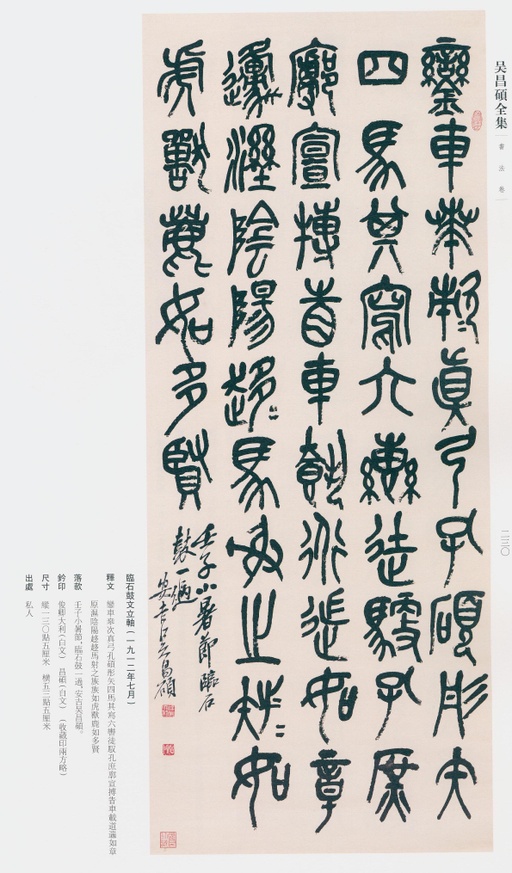 吴昌碩全集
書法卷
二三〇
鑾車𠦪敕真弓孔碩彤矢
四馬其寫六轡徒馭孔庶
廓宣搏眚車載行如章
邍濕陰陽趍=馬射之族=如
虎獸鹿如多賢
壬子小暑節臨石
鼓一通安吉吳昌碩
臨石鼓文立軸(一九一二年七月)
釋文 鑾車𠦪次真弓孔碩彤矢四馬其寫六轡徒馭孔庶廓宣搏眚車載道如章
原濕陰陽趍趍馬射之族族如虎獸鹿如多賢
落款 壬子小暑節,臨石鼓一通。安吉吳昌碩。
鈐印 俊卿大利(白文) 昌碩(白文) (收藏印兩方略)
尺寸 縱一三〇點五厘米 橫五三點五厘米
出處 私人